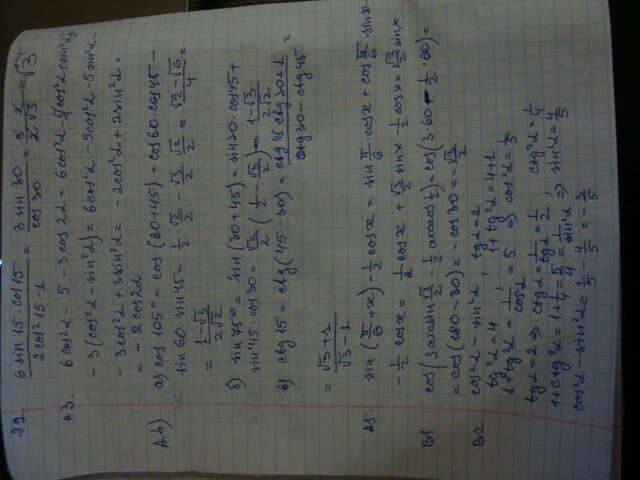 A2. 6 sin 15 · cos 15 / 2cos²15 - 1 = 3 sin 30 / cos 30 = √3
A3. 6cos²α - 5 - 3cos 2α = 6cos²α - 5(cos²α + sin²α)
- 3(cos²α - sin²α) = 6cos²α - 5cos²α - 5sin²α -
- 3cos²α + 3sin²α = -2cos²α + 2sin²α =
= - 2cos2α
A4) а) cos 105° = cos (60+45) = cos 60 · cos 45 -
sin 60 · sin 45 = 1/2 · √2/2 - √3/2 · √2/2 = √2 - √6 / 4 =
= 1-√3 / 2√2
б) sin 75° = sin (30+45) = sin 30 · cos 45 +
sin 45 · cos 30 = √2/2 (1/2 - √3/2) = 1-√3 / 2√2
в) ctg 15 = ctg (45 - 30) = ctg 45 ctg 30 + 1 / ctg 30 - ctg 45 =
= √3 + 1 / √3 - 1
A5. sin (π/6 + x) - 1/2 cos x = sin π/6 · cos x + cos π/6 · sin x
- 1/2 cos x = 1/2 cos x + √3/2 sin x - 1/2 cos x = √3/2 sin x
B1. cos (3 arcsin √3/2 - 1/2 arccos 1/2) = cos (3·60 - 1/2 · 60) =
= cos (180 - 30) = - cos 30 = - √3/2
B2 cos²α - sin²α, tgα = 2
tg²α = 4, 1 + tg²α = 4+1
1 + tg²α = 1/cos²α = 5 ⇒ cos²α = 1/5
tgα = 2 ⇒ ctgα = 1/tgα = 1/2, ctg²α = 1/4
1 + ctg²α = 1 + 1/4 = 5/4 = 1/sin²α ⇒ sin²α = 4/5
cos²α - sin²α = 1/5 - 4/5 = - 3/5